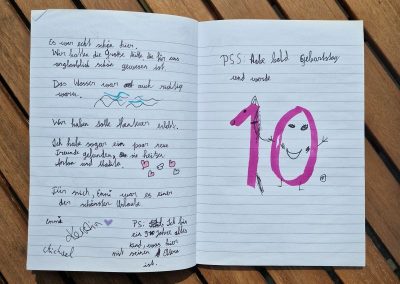 Es war echt schön hier.
Wir hatten die Große Hütte die für uns
unglaublich schön gewesen ist.
Das Wasser war auch richtig
warm.
Wir haben tolle erlebt.
Ich habe sogar ein paar neue
Freunde gefunden, sie heißen
und
Für mich, Emmi war es einer
der schönsten Urlaube
Emmi
Kerstin
Michael
PS. Ich bin
ein Jahre altes
Kind, war hier
mit seinen Eltern
ist.
PSS Habe bald Geburtstag
und werde
10